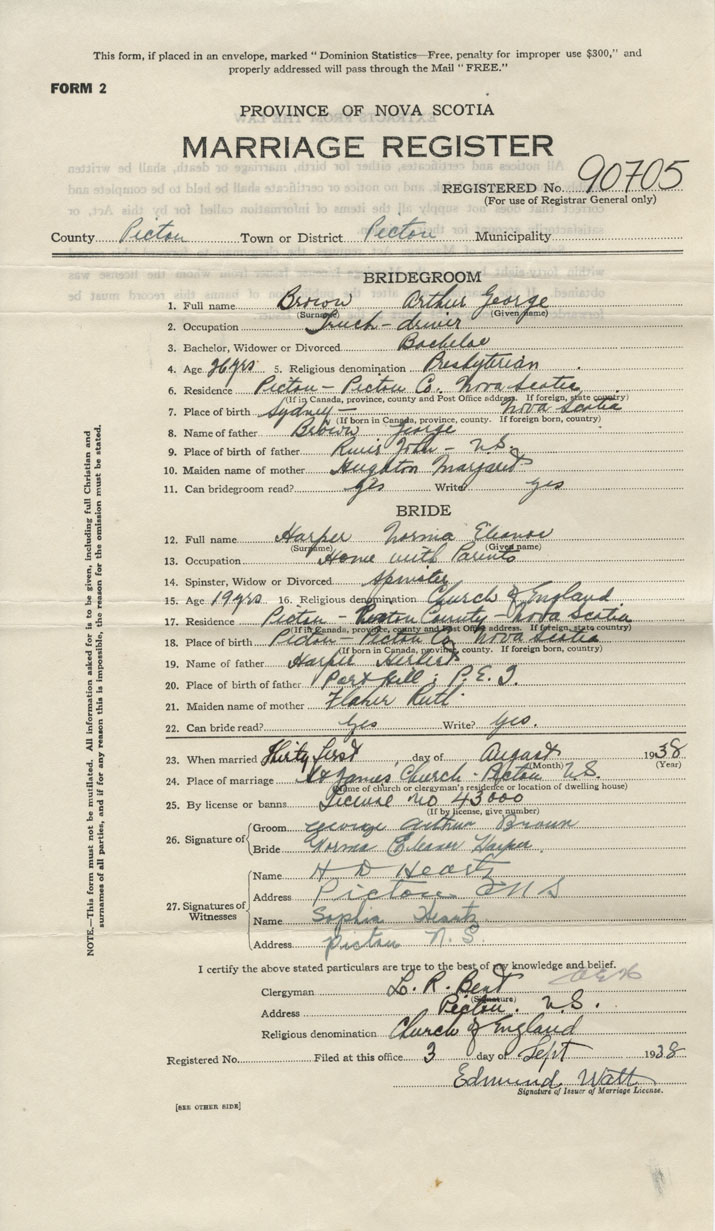 This form, if placed in an envelope, marked "Dominion Statistics—Free, penalty for improper use $300," and
properly addressed will pass through the Mail "FREE."
FORM 2
PROVINCE OF NOVA SCOTIA
MARRIAGE REGISTER
REGISTERED No. 90705
(For use of Registrar General only)
County Pictou Town or District Pictou Municipality
BRIDEGROOM
1. Full name Brown Arthur George
(Surname) (Given name)
2. Occupation Truck-driver
3. Bachelor, Widower or Divorced Bachelor
4. Age 26 yrs 5. Religious denomination Presbyterian
6. Residence Pictou - Pictou Co. Nova Scotia
(If in Canada, province, county and Post Office address. If foreign, state country)
7. Place of birth Sydney - Nova Scotia
(If born in Canada, province, county. If foreign born, country)
8. Name of father Brown George
9. Place of birth of father River John - N.S.
10. Maiden name of mother Margaret
11. Can bridegroom read? Yes Write yes
BRIDE
12. Full name Harper Norma Eleanor
(Surname) (Given name)
13. Occupation Home with Parents
14. Spinster, Widow or Divorced Spinster
15. Age 19 yrs 16. Religious denomination Church of England
17. Residence Pictou - Pictou County - Nova Scotia
(If in Canada, province, county and Post Office address. If foreign, state country)
18. Place of birth Pictou - Pictou Co. Nova Scotia
(If born in Canada, province, county. If foreign born, country)
19. Name of father Harper Herbert
20. Place of birth of father Port Hill; P.E.I.
21. Maiden name of mother Ruth
22. Can bride read? Yes Write? Yes.
23. When married Thirty first day of August 1938
(Month) (Year)
24. Place of marriage St James Church - Pictou N.S.
(Name of church or clergyman's residence or location of dwelling house)
25. By license or banns License no 43000
(If by license, give number)
26. Signature of Groom George Arthur Brown
Bride Norma Eleanor Harper
27. Signatures of Witnesses
Name H D Heartz
Address Pictou N S
Name Sophia Heartz
Address Pictou N.S.
I certify the above stated particulars are true to the best of my knowledge and belief.
Clergyman L. R. Bent
(Signature)
Address Pictou. N.S.
Religious denomination Church of England
Registered No. Filed at this office 3 day of Sept 1938
Edmund Watt
Signature of Issuer of Marriage License.
[SEE OTHER SIDE]
NOTE.—This form must not be mutilated. All information asked for is to be given, including full Christian and
surnames of all parties, and if for any reason this is impossible, the reason for the omission must be stated.